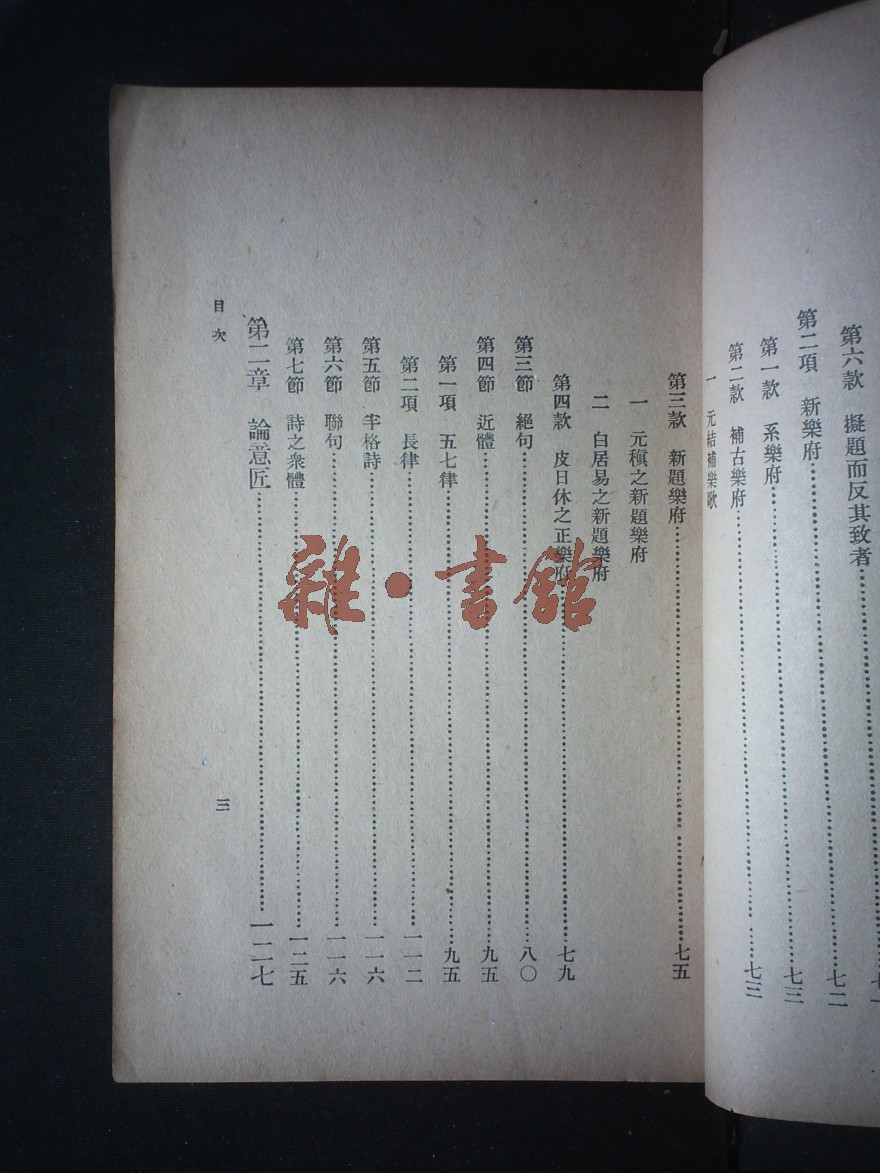 第六款　擬題而反其致者……七一
第二項　新樂府……七二
第一款　系樂府……七三
第二款　補古樂府……七三
一　元結補樂歌
第三款　新題樂府……七五
一　元稹之新題樂府
二　白居易之新題樂府
第四款　皮日休之正樂府……七九
第三節　絕句……八〇
第四節　近體……九五
第一項　五七律……九五
第二項　長律……一一二
第五節　半格詩……一一六
第六節　聯句……一一六
第七節　詩之衆體……一二五
第二章　論意匠……一二七
目次
三
雜·書館